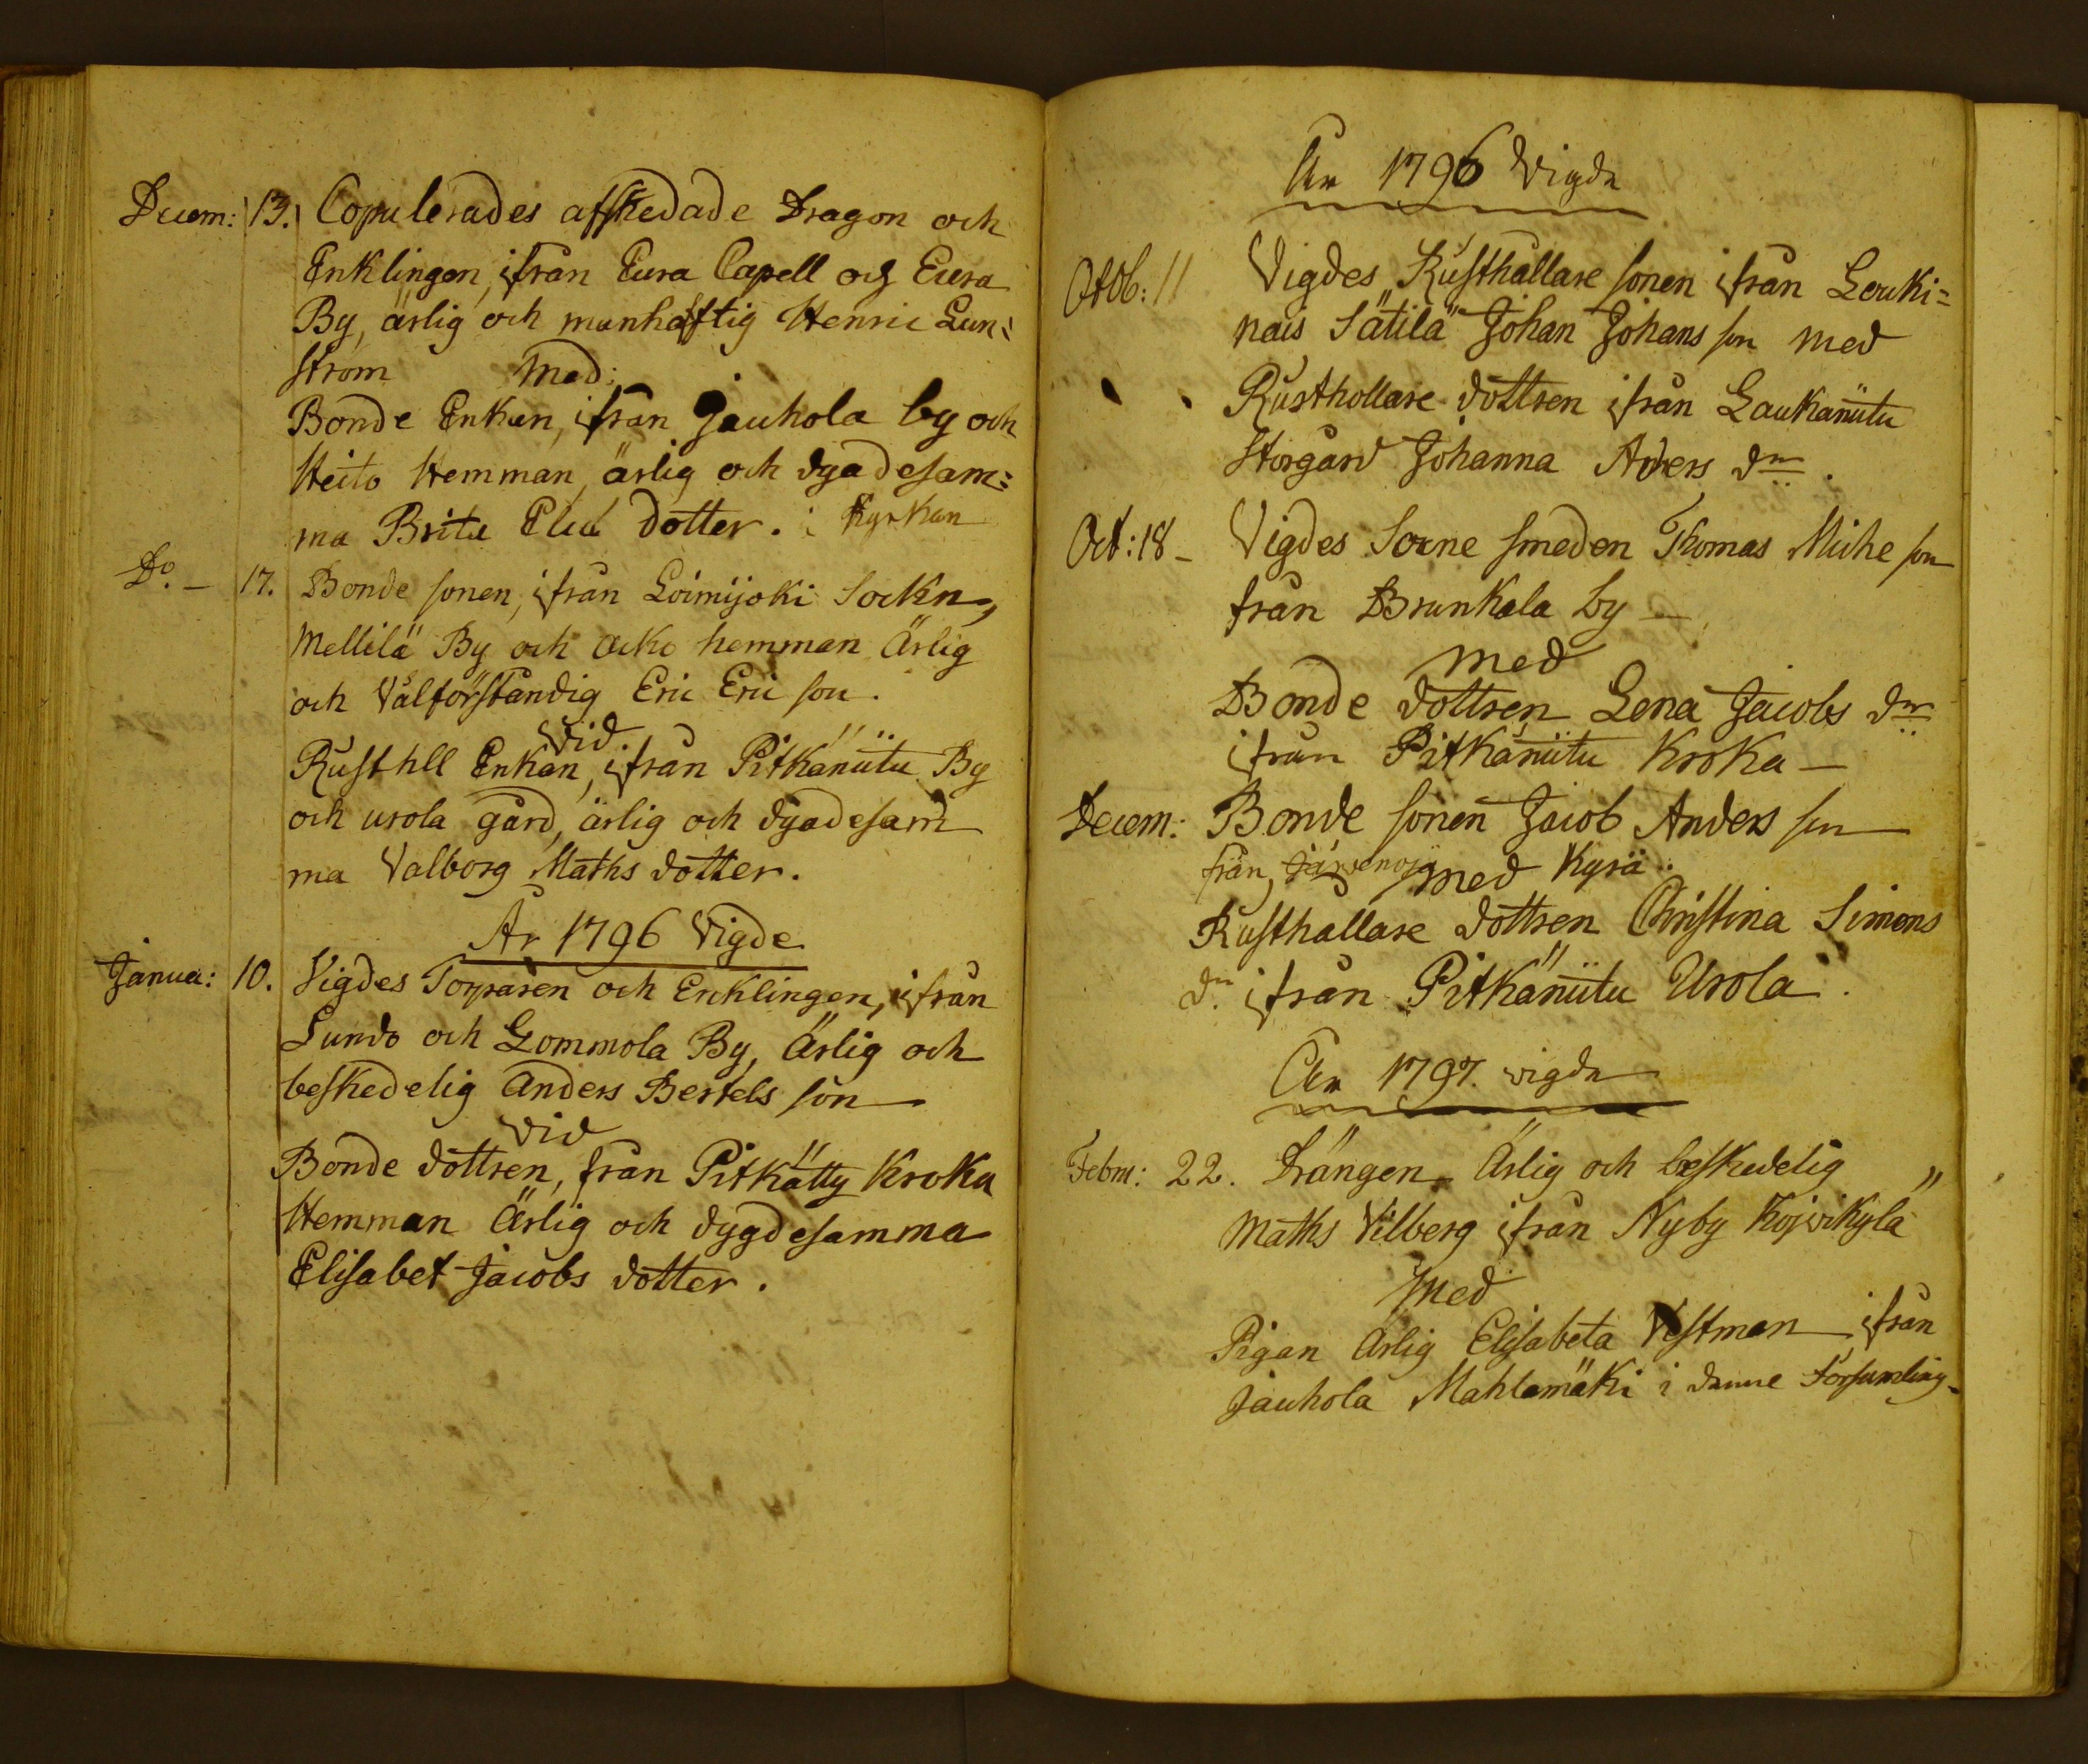 Decem: 13. Copulerades afskedade Dragon och
Enklingen, ifrån Eura Capell och Eura
By, ärlig och manhaftig Henric Lun=
ström med:
Bonde Enkan, ifrån Jauhola by och
Heito Hemman, ärlig och dygdesam=
ma Brita Elia dotter. i Kyrkan
Do. – 17. Bonde sonen, ifrån Loimijoki Sockn,
Mellilä By och hemman Ärlig
och Välförståndig Eric Eric son.
vid
Rusthll Enkan, ifrån Pitkäniitu By
och urola gård, ärlig och dygdesam
ma Valborg Maths dotter.
År 1796 Vigde
Janua: 10. Vigdes Torparen och Enklingen, ifrån
Lundo och Gommola By, Ärlig och
beskedelig Anders Bertels son
vid
Bonde dottren, från Pitkätty Kroka
Hemman Ärlig och dygdesamma
Elisabet Jacobs dotter.
År 1796 Vigde
Octob: 11 Vigdes Rusthållare sonen ifrån Louki=
nais Sätilä Johan Johans son med
Rusthollare dottren ifrån Laukaniitu
Storgård Johanna Anders dr.
Oct: 18 – Vigdes Sockne smeden Thomas Mihe son
från Brunkala by –
med
Bonde dottren Lena Jacobs dr
ifrån Pitkäniitu Kroka –
Decem: Bonde sonen Jacob Anders son
från, Järvenoja med Kyrä
Rusthallare dottren Christina Simons
dr. ifrån Pitkäniitu Urola.
År 1797. vigde
Febru: 22. Drängen Ärlig och beskedelig
Maths Vilberg ifrån Nyby Kojvikylä
med
Pigan Ärlig Elisabeta Vestman ifrån
Jauhola Mahlamäki i denne Församling.